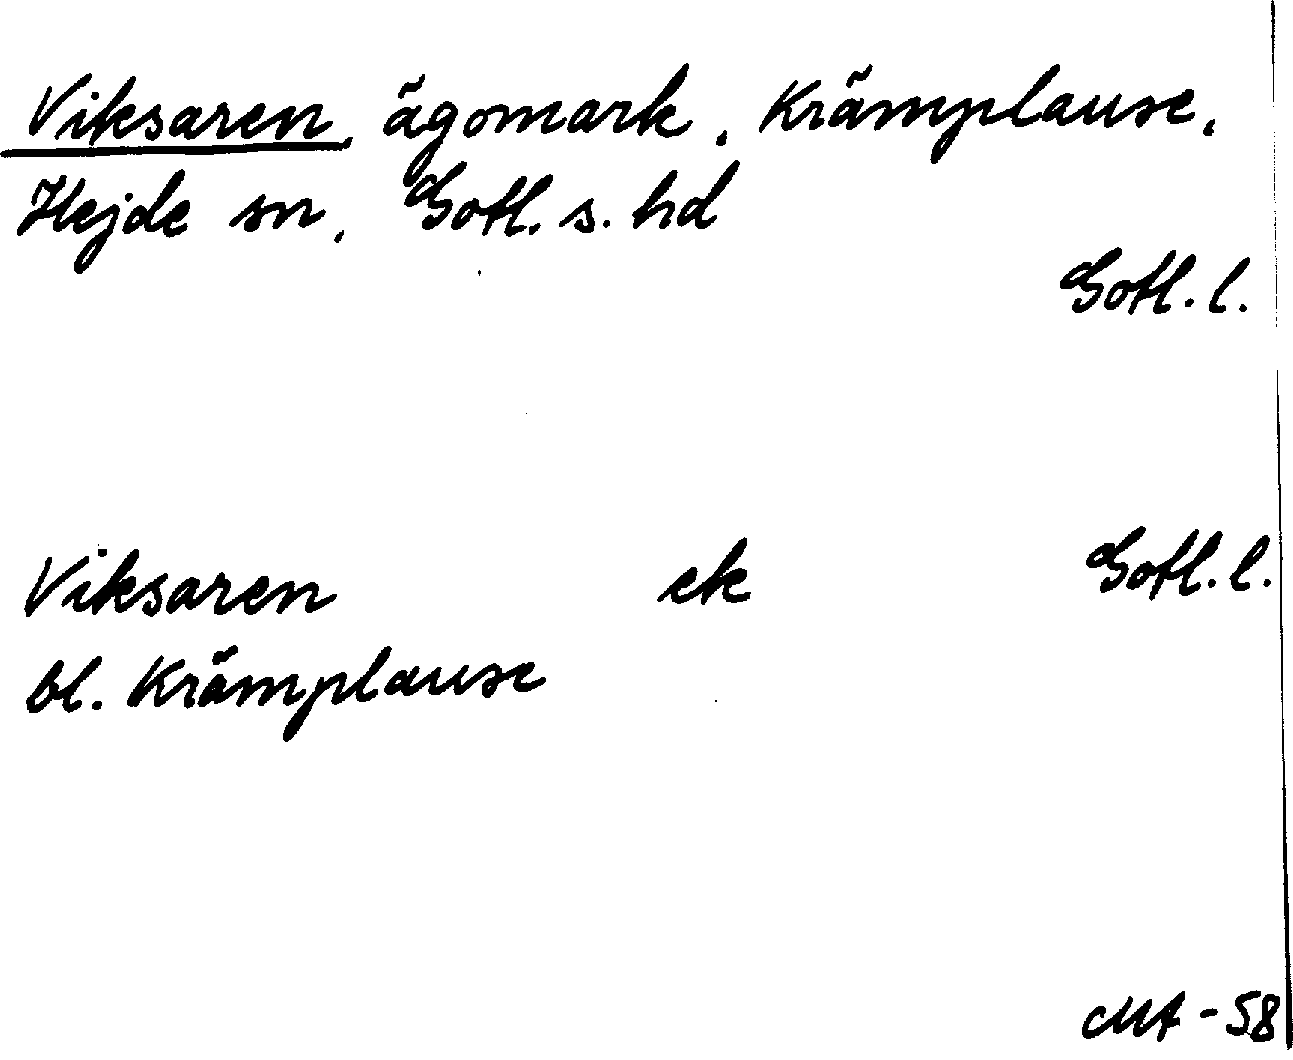 Viksaren, ägomark, Krämplause,
Hejde sn, Gotl. s. hd
Gotl. l.
Viksaren ek Gotl. l.
bl. Krämplause
MA - 58